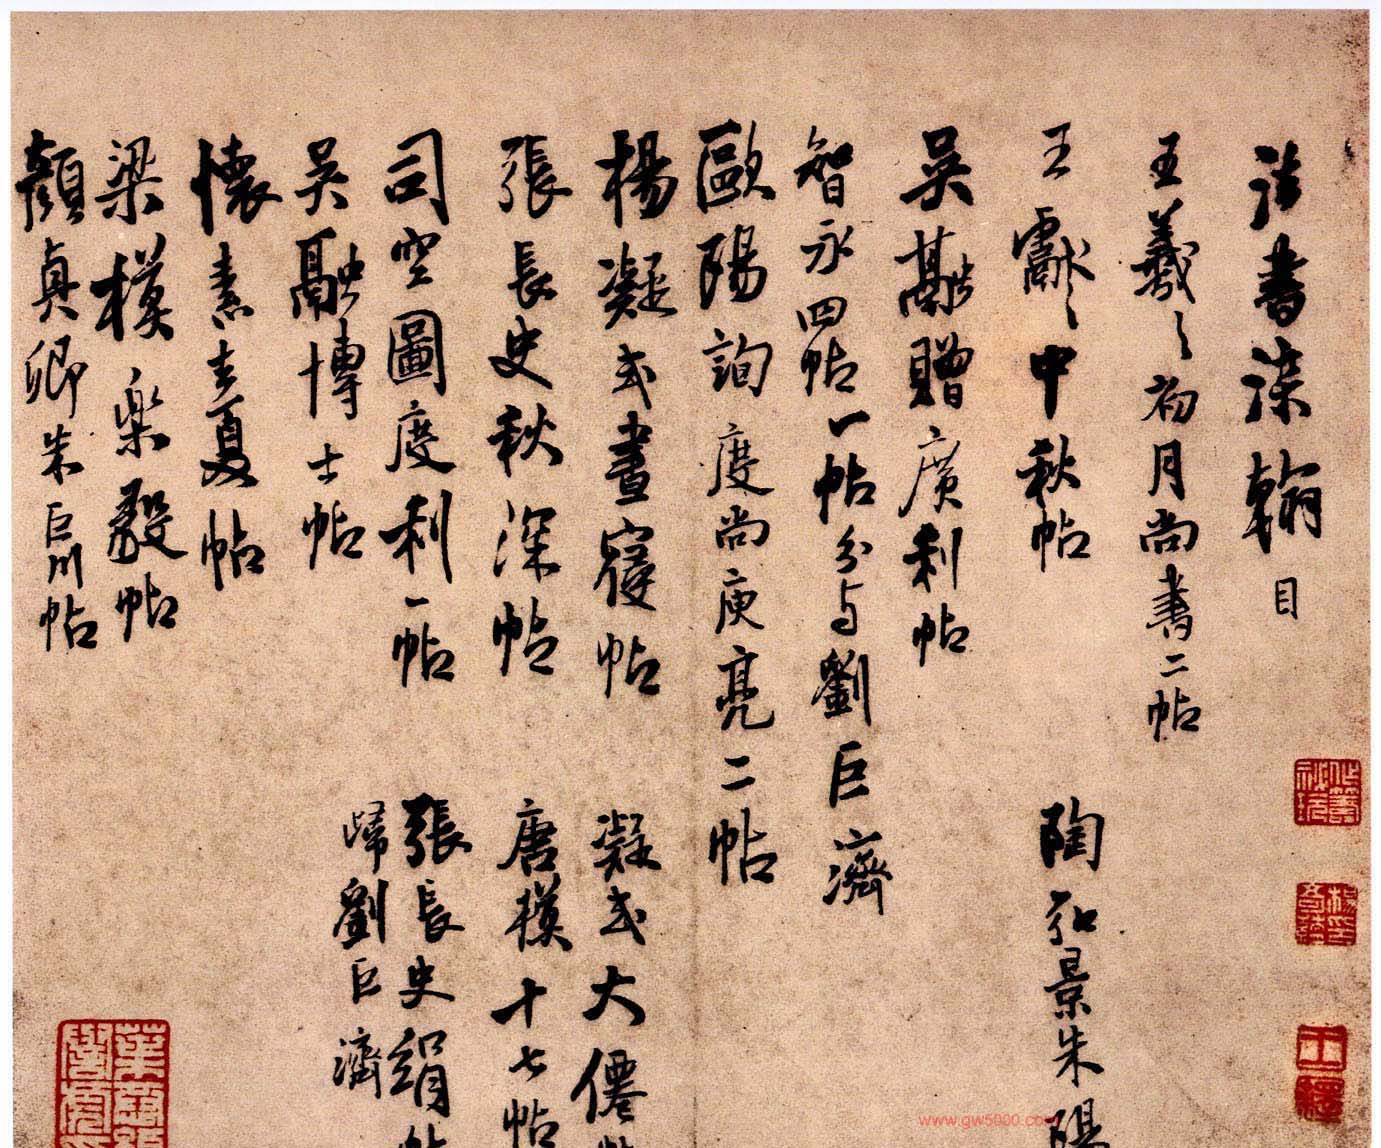 法書染翰目
王羲之初月尚書二帖
王獻之中秋帖
陶弘景朱陽
吳融贈廣利帖
智永四帖一帖分与劉巨濟
歐陽詢度尚庾亮二帖
楊凝式晝寢帖
凝式大僊帖
張長史秋深帖
唐模十七帖
司空圖度利一帖
張長史絹帖
吳融博士帖
歸劉巨濟
懷素去夏帖
梁模樂毅帖
顏真卿朱巨川帖
www.gw5000.com